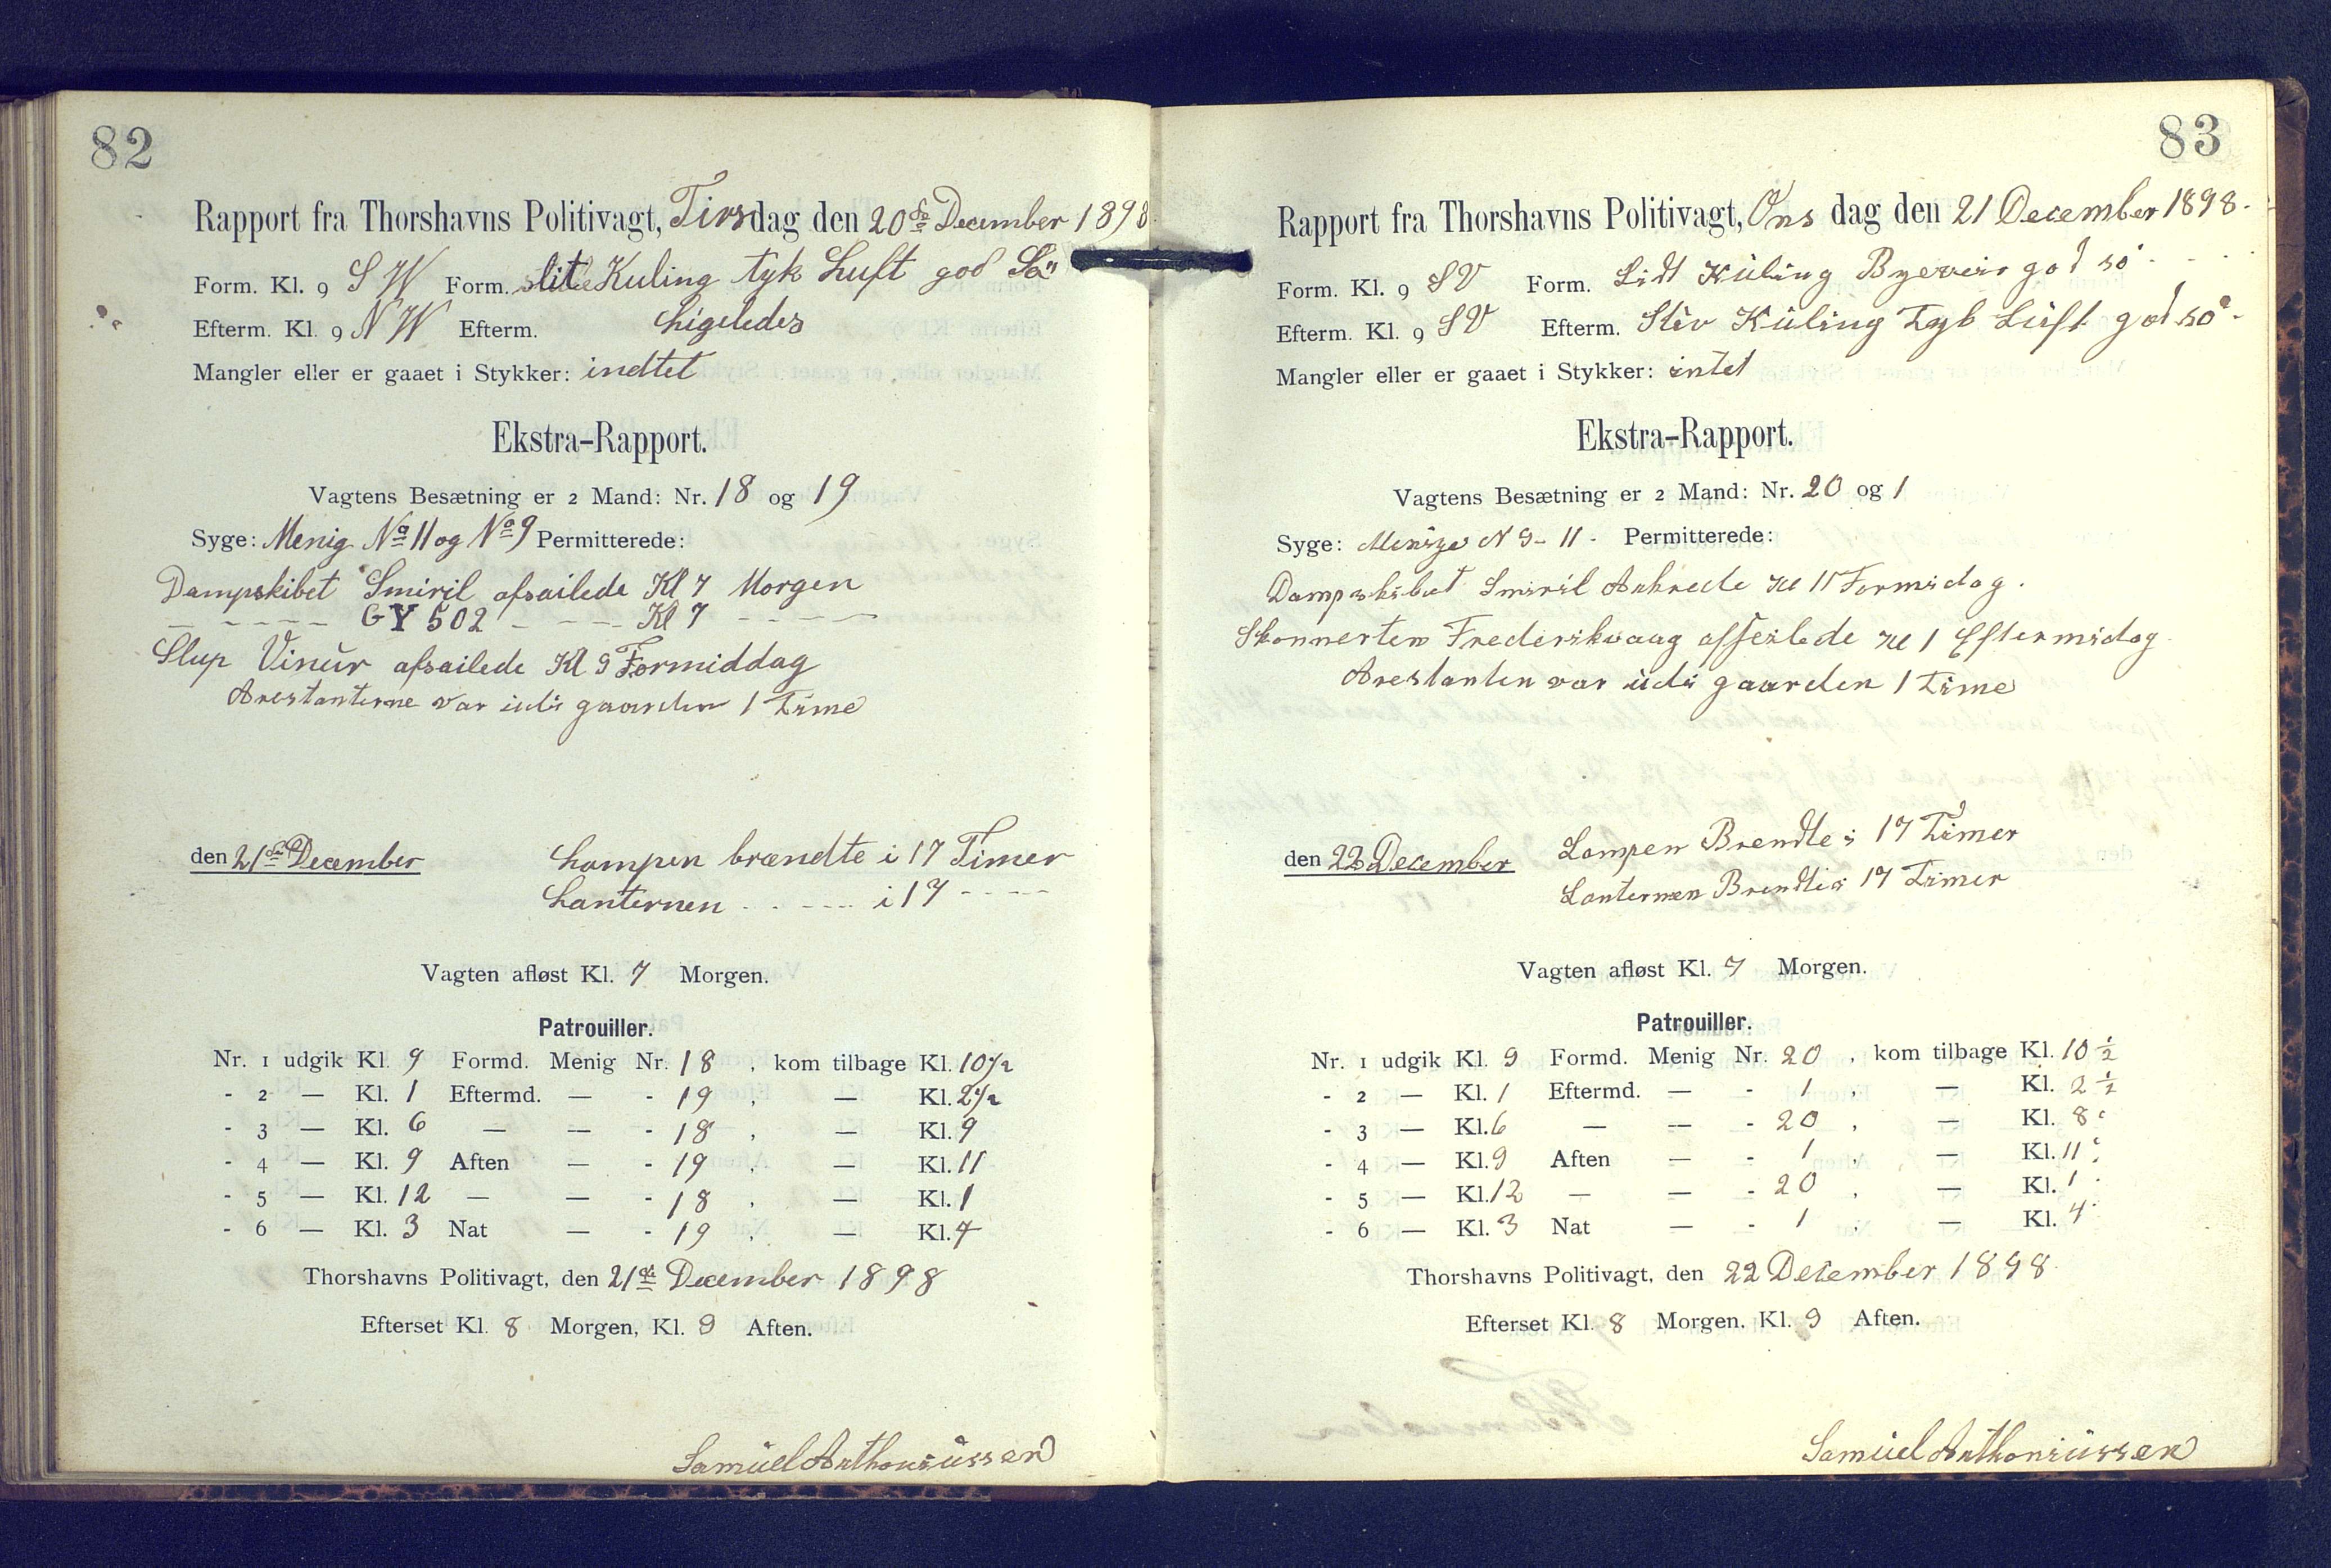 82
Rapport fra Thorshavns Politivagt, Tirsdag den 20de December 1898
Form. Kl. 9 S W Form. lit Kuling tyk Luft god Sö
Efterm. Kl. 9 N W Efterm. Ligeledes
Mangler eller er gaaet i Stykker: indtet
Ekstra-Rapport.
Vagtens Besætning er 2 Mand: Nr. 18 og 19
Syge: Menig No 11 og No 9 Permitterede:
Dampskibet Smiril afsailede Kl 7 Morgen
- - - - - GY 502 - - - - Kl 7 - - - -
Slup Vinur afsailede Kl 9 Formiddag
Arestanterne var udi gaarden 1 Time
den 21de December Lampen brændte i 17 Timer
Lanternen - - - - - i 17 - - - -
Vagten afløst Kl. 7 Morgen.
Patrouiller.
Nr. 1 udgik Kl. 9 Formd. Menig Nr. 18 , kom tilbage Kl. 10 1/2
- 2 — Kl. 1 Eftermd. — - 19 , — Kl. 2 1/2
- 3 — Kl. 6 — — - 18 , — Kl. 9
- 4 — Kl. 9 Aften — - 19 , — Kl. 11
- 5 — Kl. 12 — — - 18 , — Kl. 1
- 6 — Kl. 3 Nat — - 19 , — Kl. 4
Thorshavns Politivagt, den 21de December 1898
Efterset Kl. 8 Morgen, Kl. 9 Aften.
Samüel Anthoniüssen
83
Rapport fra Thorshavns Politivagt, Ons dag den 21 December 1898.
Form. Kl. 9 SV Form. Lidt Küling Byeveir god sö
Efterm. Kl. 9 SV Efterm. Stiv Küling Tyk Lüft god sö
Mangler eller er gaaet i Stykker: intet
Ekstra-Rapport.
Vagtens Besætning er 2 Mand: Nr. 20 og 1
Syge: Menige N 9 - 11 - Permitterede:
Dampskibet Smiril Ankrede Kl 11 Formidag.
Skonnerten Frederiksvaag affeilede Kl 1 Eftermidag
Arestanten var üdi gaarden 1 Time
den 22 December Lampen Brendte i 17 Timer
Lanternen Brendte i 17 Timer
Vagten afløst Kl. 7 Morgen.
Patrouiller.
Nr. 1 udgik Kl. 9 Formd. Menig Nr. 20 , kom tilbage Kl. 10 1/2
- 2 — Kl. 1 Eftermd. — - 1 , — Kl. 2 1/2
- 3 — Kl. 6 — — - 20 , — Kl. 8
- 4 — Kl. 9 Aften — - 1 , — Kl. 11
- 5 — Kl. 12 — — - 20 , — Kl. 1
- 6 — Kl. 3 Nat — - 1 , — Kl. 4
Thorshavns Politivagt, den 22 December 1898
Efterset Kl. 8 Morgen. Kl. 9 Aften.
Samüel Anthoniüssen